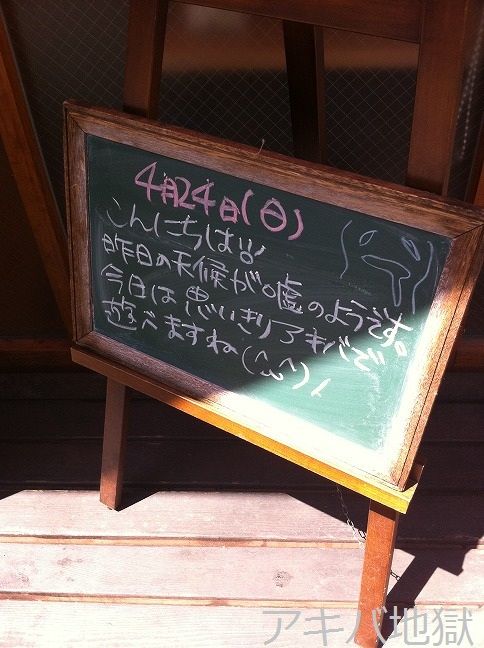 4月24日(日)
こんにちは!!
昨日の天候が嘘のようです。
今日は思いきりアキバで
遊べますね(^ω^)!
アキバ地獄